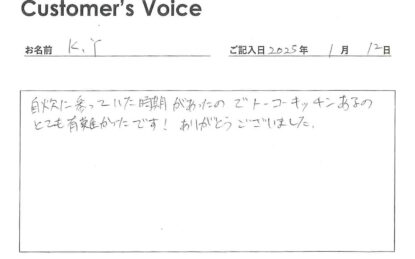 Customer's Voice
お名前 K.Y
ご記入日 2025年 1月 12日
自炊に困っていた時期があったのでトーコーキッチンあるの
とても有難かったです！ありがとうございました。